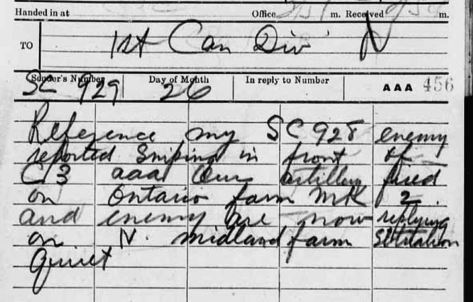 Handed in at Office m. Received m.
TO 1st Can Div N
Sender's Number Day of Month In reply to Number
SC 929 26 AAA 456
Reference my SC 928 enemy
reported Sniping in front of
C 3 aaa Our artillery fired
on Ontario farm MK 2
and enemy are now replying
on N. midland farm Situation
Quiet